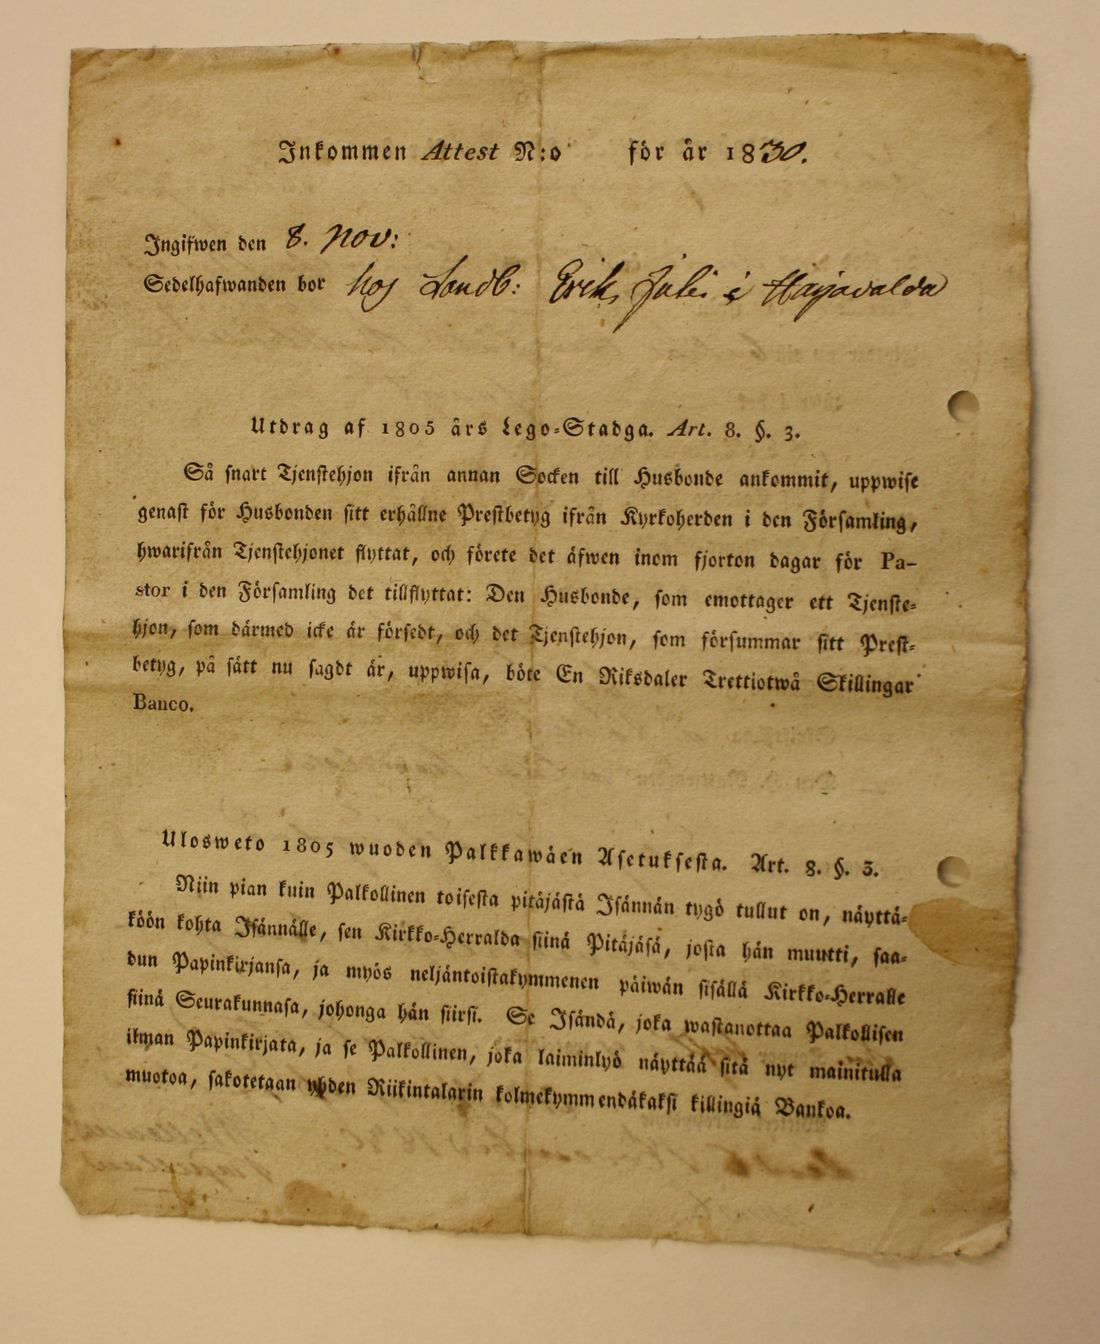 Inkommen Attest N:o för år 1830.
Ingifwen den 8. Nov:
Sedelhafwanden bor hos Landb: Erik i
Utdrag af 1805 års Lego-Stadga. Art. 8. §. 3.
Så snart Tjenstehjon ifrån annan Socken till Husbonde ankommit, uppwise
genast för Husbonden sitt erhållne Prestbetyg ifrån Kyrkoherden i den Församling,
hwarifrån Tjenstehjonet flyttat, och förete det äfwen inom fjorton dagar för Pa-
stor i den Församling det tillflyttat: Den Husbonde, som emottager ett Tjenste-
hjon, som därmed icke är försedt, och det Tjenstehjon, som försummar sitt Prest-
betyg, på sätt nu sagdt är, uppwisa, böte En Riksdaler Trettiotwå Skillingar
Banco.
Ulosweto 1805 wuoden Palkkawäen Asetuksesta. Art. 8. §. 3.
Niin pian kuin Palkollinen toisesta pitäjästä Isännän tygö tullut on, näyttä-
köön kohta Isännälle, sen Kirkko-Herralda siinä Pitäjäsä, josta hän muutti, saa-
dun Papinkirjansa, ja myös neljäntoistakymmenen päiwän sisällä Kirkko-Herralle
siinä Seurakunnasa, johonga hän siirsi. Se Isändä, joka wastanottaa Palkollisen
ilman Papinkirjata, ja se Palkollinen, joka laiminlyö näyttää sitä nyt mainitulla
muotoa, sakotetaan yhden Riikintalarin kolmekymmendäkaksi killingiä Bankoa.